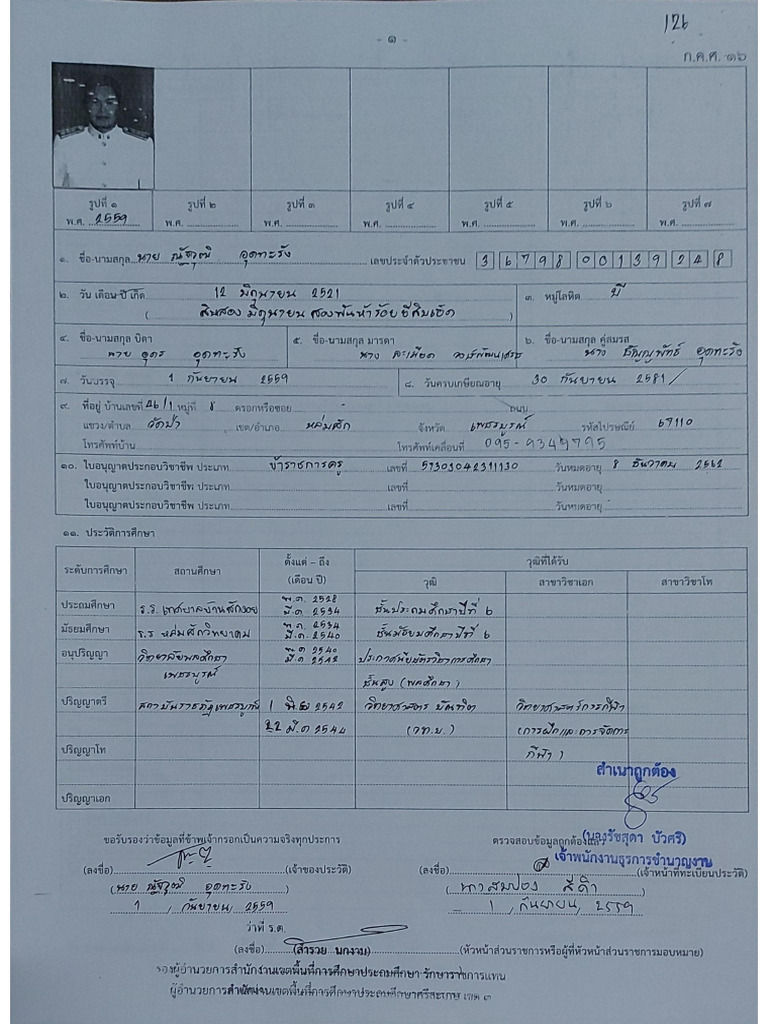 126
- ๑ -
ก.ค.ศ. ๑๖
รูปที่ ๑ รูปที่ ๒ รูปที่ ๓ รูปที่ ๔ รูปที่ ๕ รูปที่ ๖ รูปที่ ๗
พ.ศ. 2559 พ.ศ. พ.ศ. พ.ศ. พ.ศ. พ.ศ. พ.ศ.
๑. ชื่อ-นามสกุล นาย ณัฐวุฒิ อุดทะรัง เลขประจำตัวประชาชน 3 6798 00139 24 8
๒. วัน เดือน ปี เกิด 12 มิถุนายน 2521 ๓. หมู่โลหิต บี
( สิบสอง มิถุนายน สองพันห้าร้อย ยี่สิบเอ็ด )
๔. ชื่อ-นามสกุล บิดา ๕. ชื่อ-นามสกุล มารดา ๖. ชื่อ-นามสกุล คู่สมรส
นาย อุดร อุดทะรัง นาง ละเมียด นาง ธัญญพัทธ์ อุดทะรัง
๗. วันบรรจุ 1 กันยายน 2559 ๘. วันครบเกษียณอายุ 30 กันยายน 2581
๙. ที่อยู่ บ้านเลขที่ 26/1 หมู่ที่ 8 ตรอกหรือซอย - ถนน
แขวง/ตำบล วัดป่า เขต/อำเภอ หล่มสัก จังหวัด เพชรบูรณ์ รหัสไปรษณีย์ 67110
โทรศัพท์บ้าน โทรศัพท์เคลื่อนที่ 095-9349795
๑๐. ใบอนุญาตประกอบวิชาชีพ ประเภท ข้าราชการครู เลขที่ 57309042311130 วันหมดอายุ 8 ธันวาคม 2562
ใบอนุญาตประกอบวิชาชีพ ประเภท เลขที่ วันหมดอายุ
ใบอนุญาตประกอบวิชาชีพ ประเภท เลขที่ วันหมดอายุ
๑๑. ประวัติการศึกษา
ระดับการศึกษา สถานศึกษา ตั้งแต่ - ถึง (เดือน ปี) วุฒิที่ได้รับ
วุฒิ สาขาวิชาเอก สาขาวิชาโท
ประถมศึกษา ร.ร. เทศบาลบ้านสักงอย พ.ค. 2528 มี.ค 2534 ชั้นประถมศึกษาปีที่ ๖
มัธยมศึกษา ร.ร หล่มสักวิทยาคม พ.ค. 2534 มี.ค 2540 ชั้นมัธยมศึกษาปีที่ ๖
อนุปริญญา วิทยาลัยพลศึกษา พ.ค 2540 มี.ค 2542 ประกาศนียบัตรวิชาการศึกษา
เพชรบูรณ์ ชั้นสูง (พลศึกษา)
ปริญญาตรี สถาบันราชภัฏเพชรบูรณ์ 1 มิ.ย 2542 วิทยาศาสตร บัณฑิต วิทยาศาสตร์การกีฬา
22 มี.ค 2544 (วท.บ.) (การฝึกและการจัดการ
ปริญญาโท กีฬา)
สำเนาถูกต้อง
ปริญญาเอก
ขอรับรองว่าข้อมูลที่ข้าพเจ้ากรอกเป็นความจริงทุกประการ ตรวจสอบข้อมูลถูกต้องแล้ว
(นางรัชสุดา บัวศรี)
เจ้าพนักงานธุรการชำนาญงาน
(ลงชื่อ) (เจ้าของประวัติ) (ลงชื่อ) (เจ้าหน้าที่ทะเบียนประวัติ)
( นาย ณัฐวุฒิ อุดทะรัง ) ( สีดา )
1 , กันยายน, 2559 1 , กันยายน, 2559
ว่าที่ ร.ต.
(ลงชื่อ) (สำรวย นกงาม) (หัวหน้าส่วนราชการหรือผู้ที่หัวหน้าส่วนราชการมอบหมาย)
รองผู้อำนวยการสำนักงานเขตพื้นที่การศึกษาประถมศึกษา รักษาราชการแทน
ผู้อำนวยการสำนักงานเขตพื้นที่การศึกษาประถมศึกษาศรีสะเกษ เขต ๓